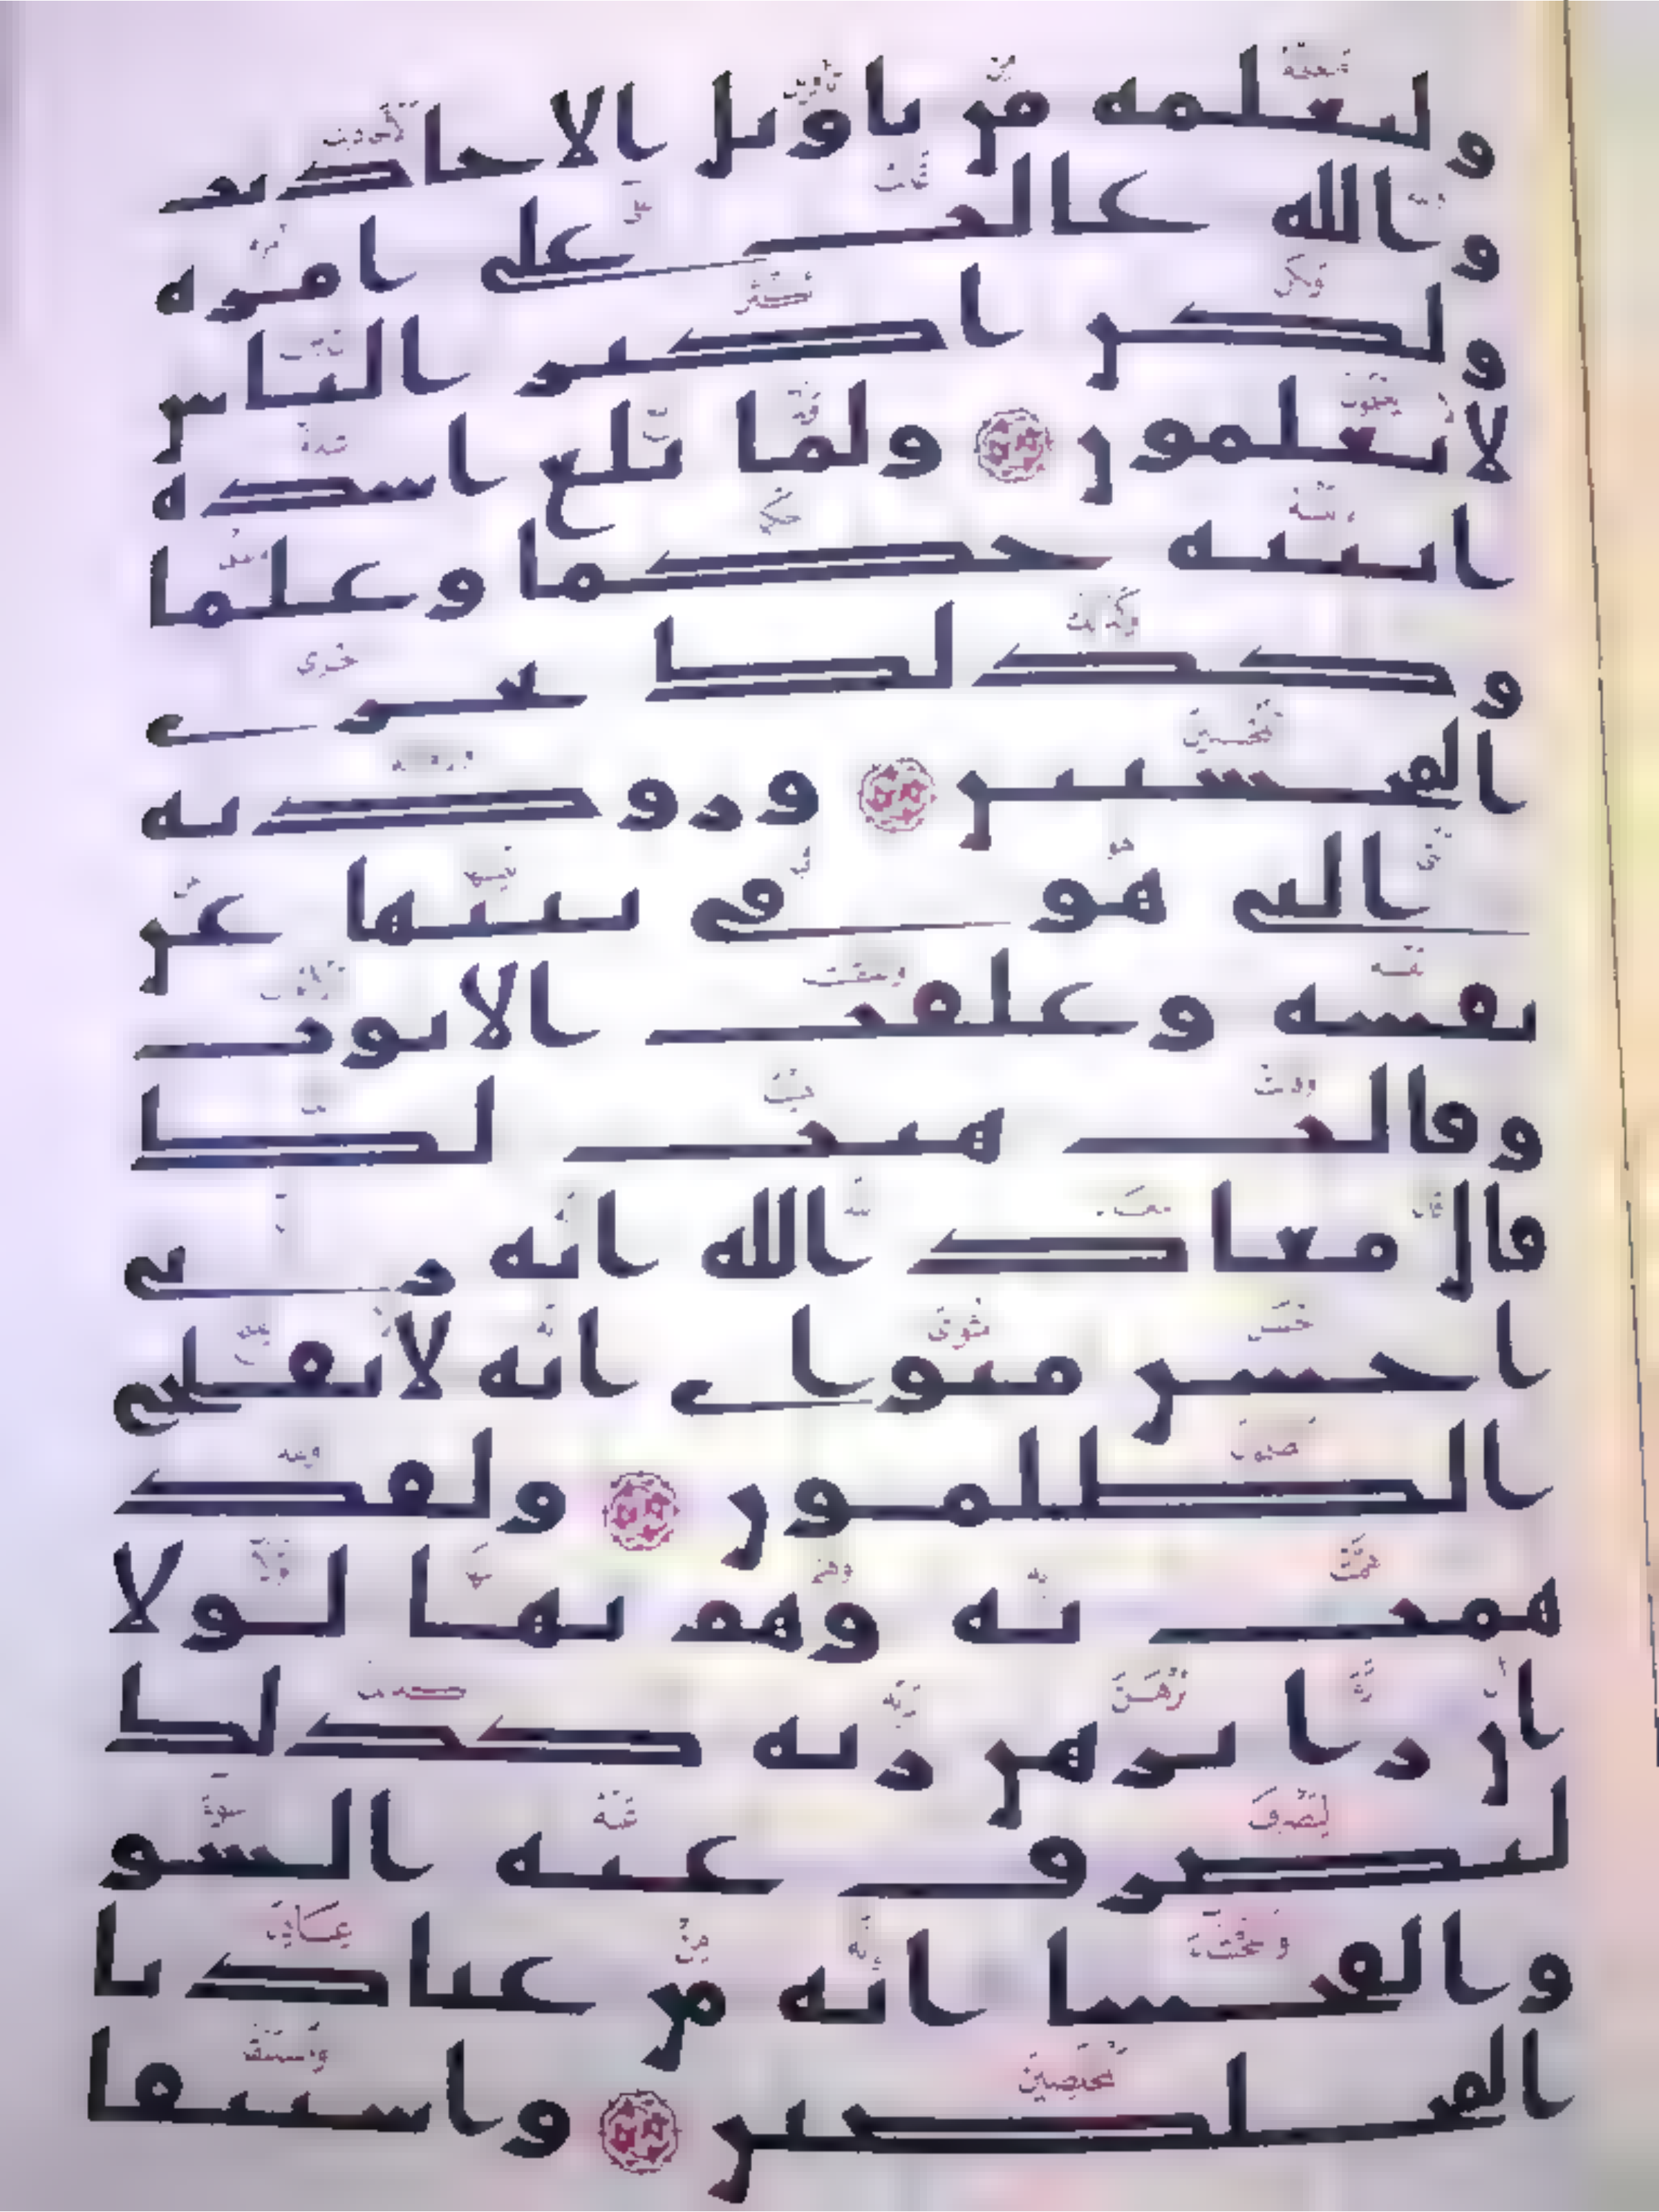 ولنعلمه من تاويل الاحاديث
والله غالب على امره
ولكن اكثر الناس
لا يعلمون ولما بلغ اشده
اتينه حكما وعلما
وكذلك نجزي
المحسنين ورودته
التي هو في بيتها عن
نفسه وغلقت الابوب
وقالت هيت لك
قال معاذ الله انه ربي
احسن مثواي انه لا يفلح
الظلمون ولقد
همت به وهم بها لولا
ان را برهن ربه كذلك
لنصرف عنه السو
والفحشا انه من عبادنا
المخلصين واستبقا